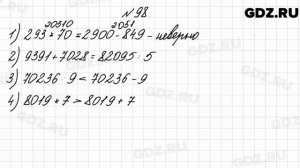 GDZ.RU
№ 98.
20510 2051
1) 293 * 70 = 2900 - 849 - неверно
2) 9391 + 7028 = 82095 : 5
3) 70236 : 9 < 70236 - 9
4) 8019 * 7 > 8019 + 7
GDZ.RU